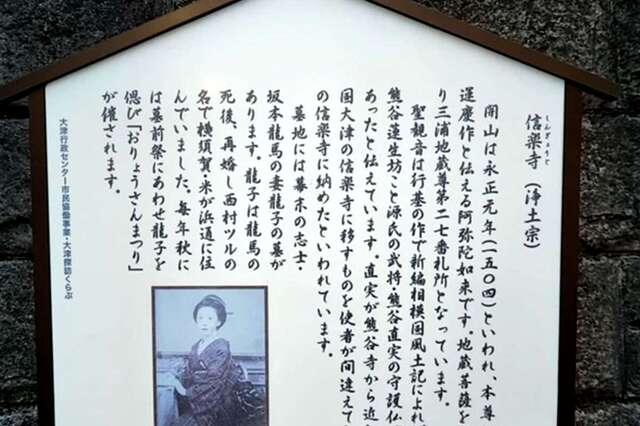 しんぎょうじ
信楽寺（浄土宗）
開山は永正元年（一五〇四）といわれ、本尊
運慶作と伝える阿弥陀如来です。地蔵菩薩を
り三浦地蔵尊第二七番札所となっています。
聖観音は行基の作で新編相模国風土記によれ
熊谷蓮生坊こと源氏の武将熊谷直実の守護仏
あったと伝えています。直実が熊谷寺から近
国大津の信楽寺に移すものを使者が間違えて
の信楽寺に納めたといわれています。
墓地には幕末の志士・
坂本龍馬の妻龍子の墓が
あります。龍子は龍馬の
死後、再婚し西村ツルの
名で横須賀・米が浜通に住
んでいました。毎年秋に
は墓前祭にあわせ龍子を
偲び「おりょうさんまつり」
が催されます。
大津行政センター市民協働事業・大津探訪くらぶ